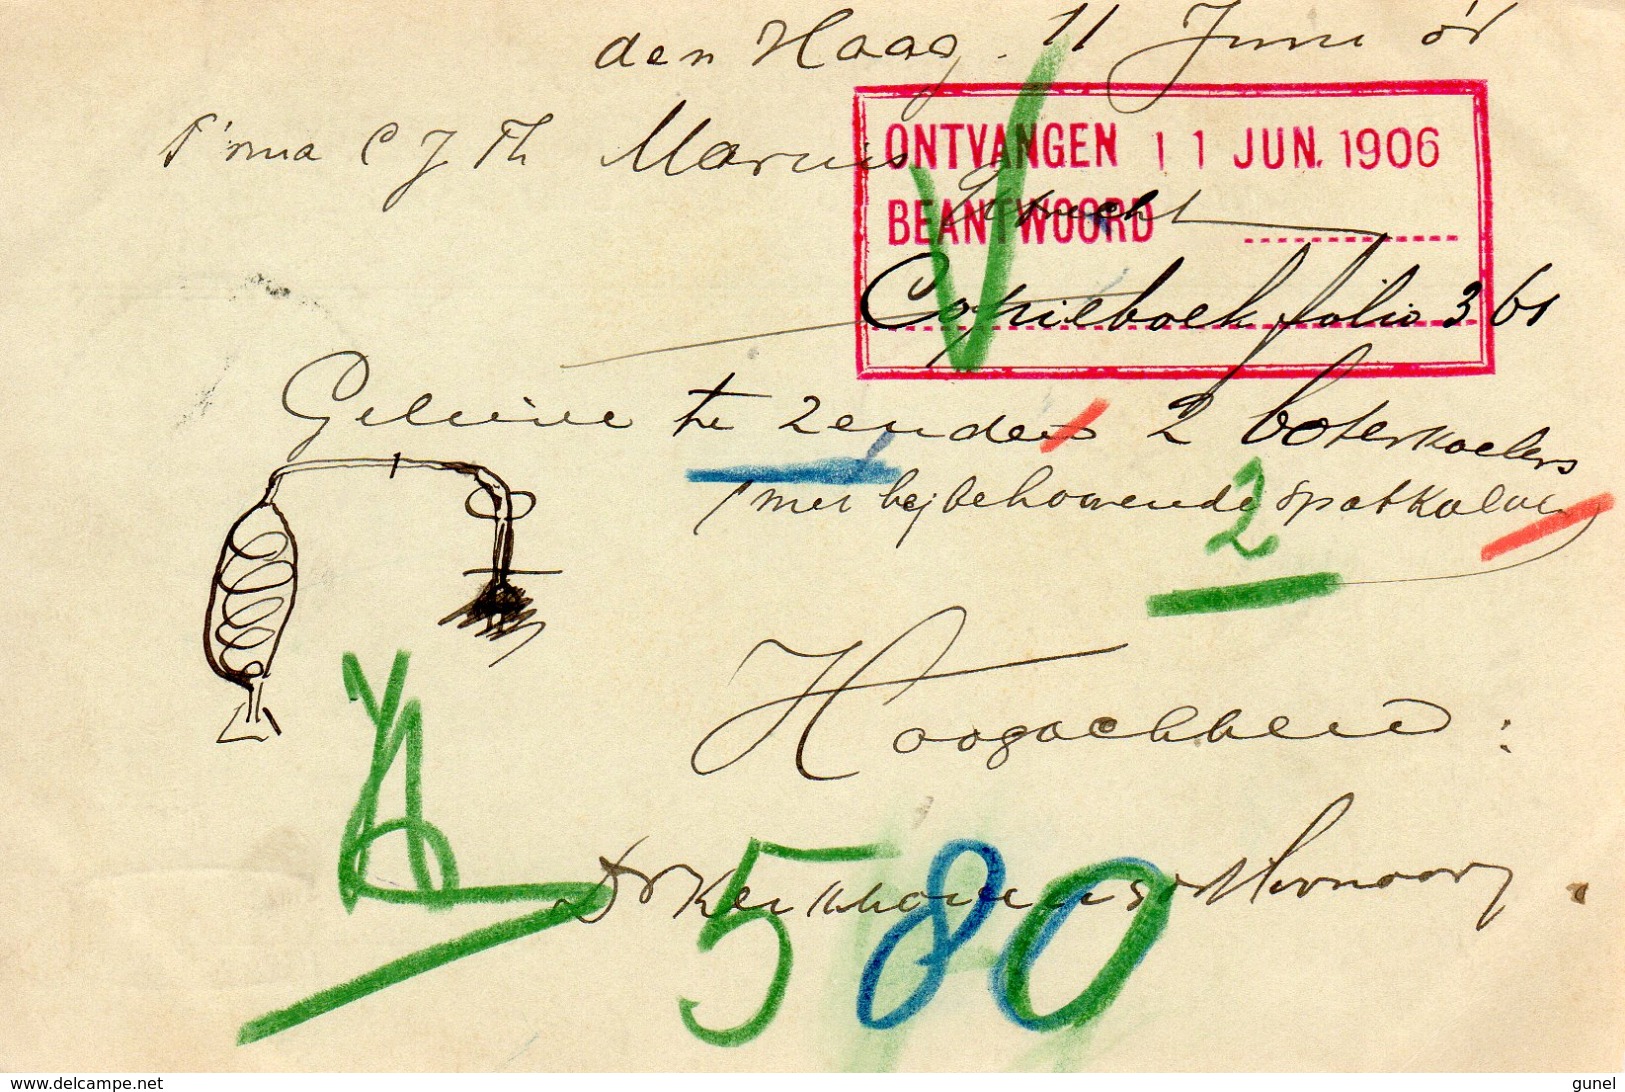 den Haag. 11 Juni 06
Firma C J Th Marius
Utrecht
ONTVANGEN 11 JUN. 1906
BEANTWOORD
Copieboek folio 361
Gelieve te zenden 2 boterkoelers
(met bijbehoorende spatkolven)
2
Hoogachtend :
Dr
580
www.delcampe.net
gunel